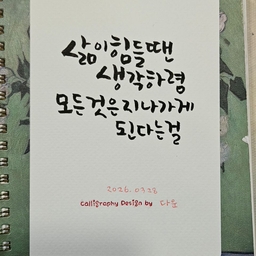 삶이힘들땐
생각하렴
모든것은지나가게
된다는걸
2026.03.28
Calligraphy Design by 다솜